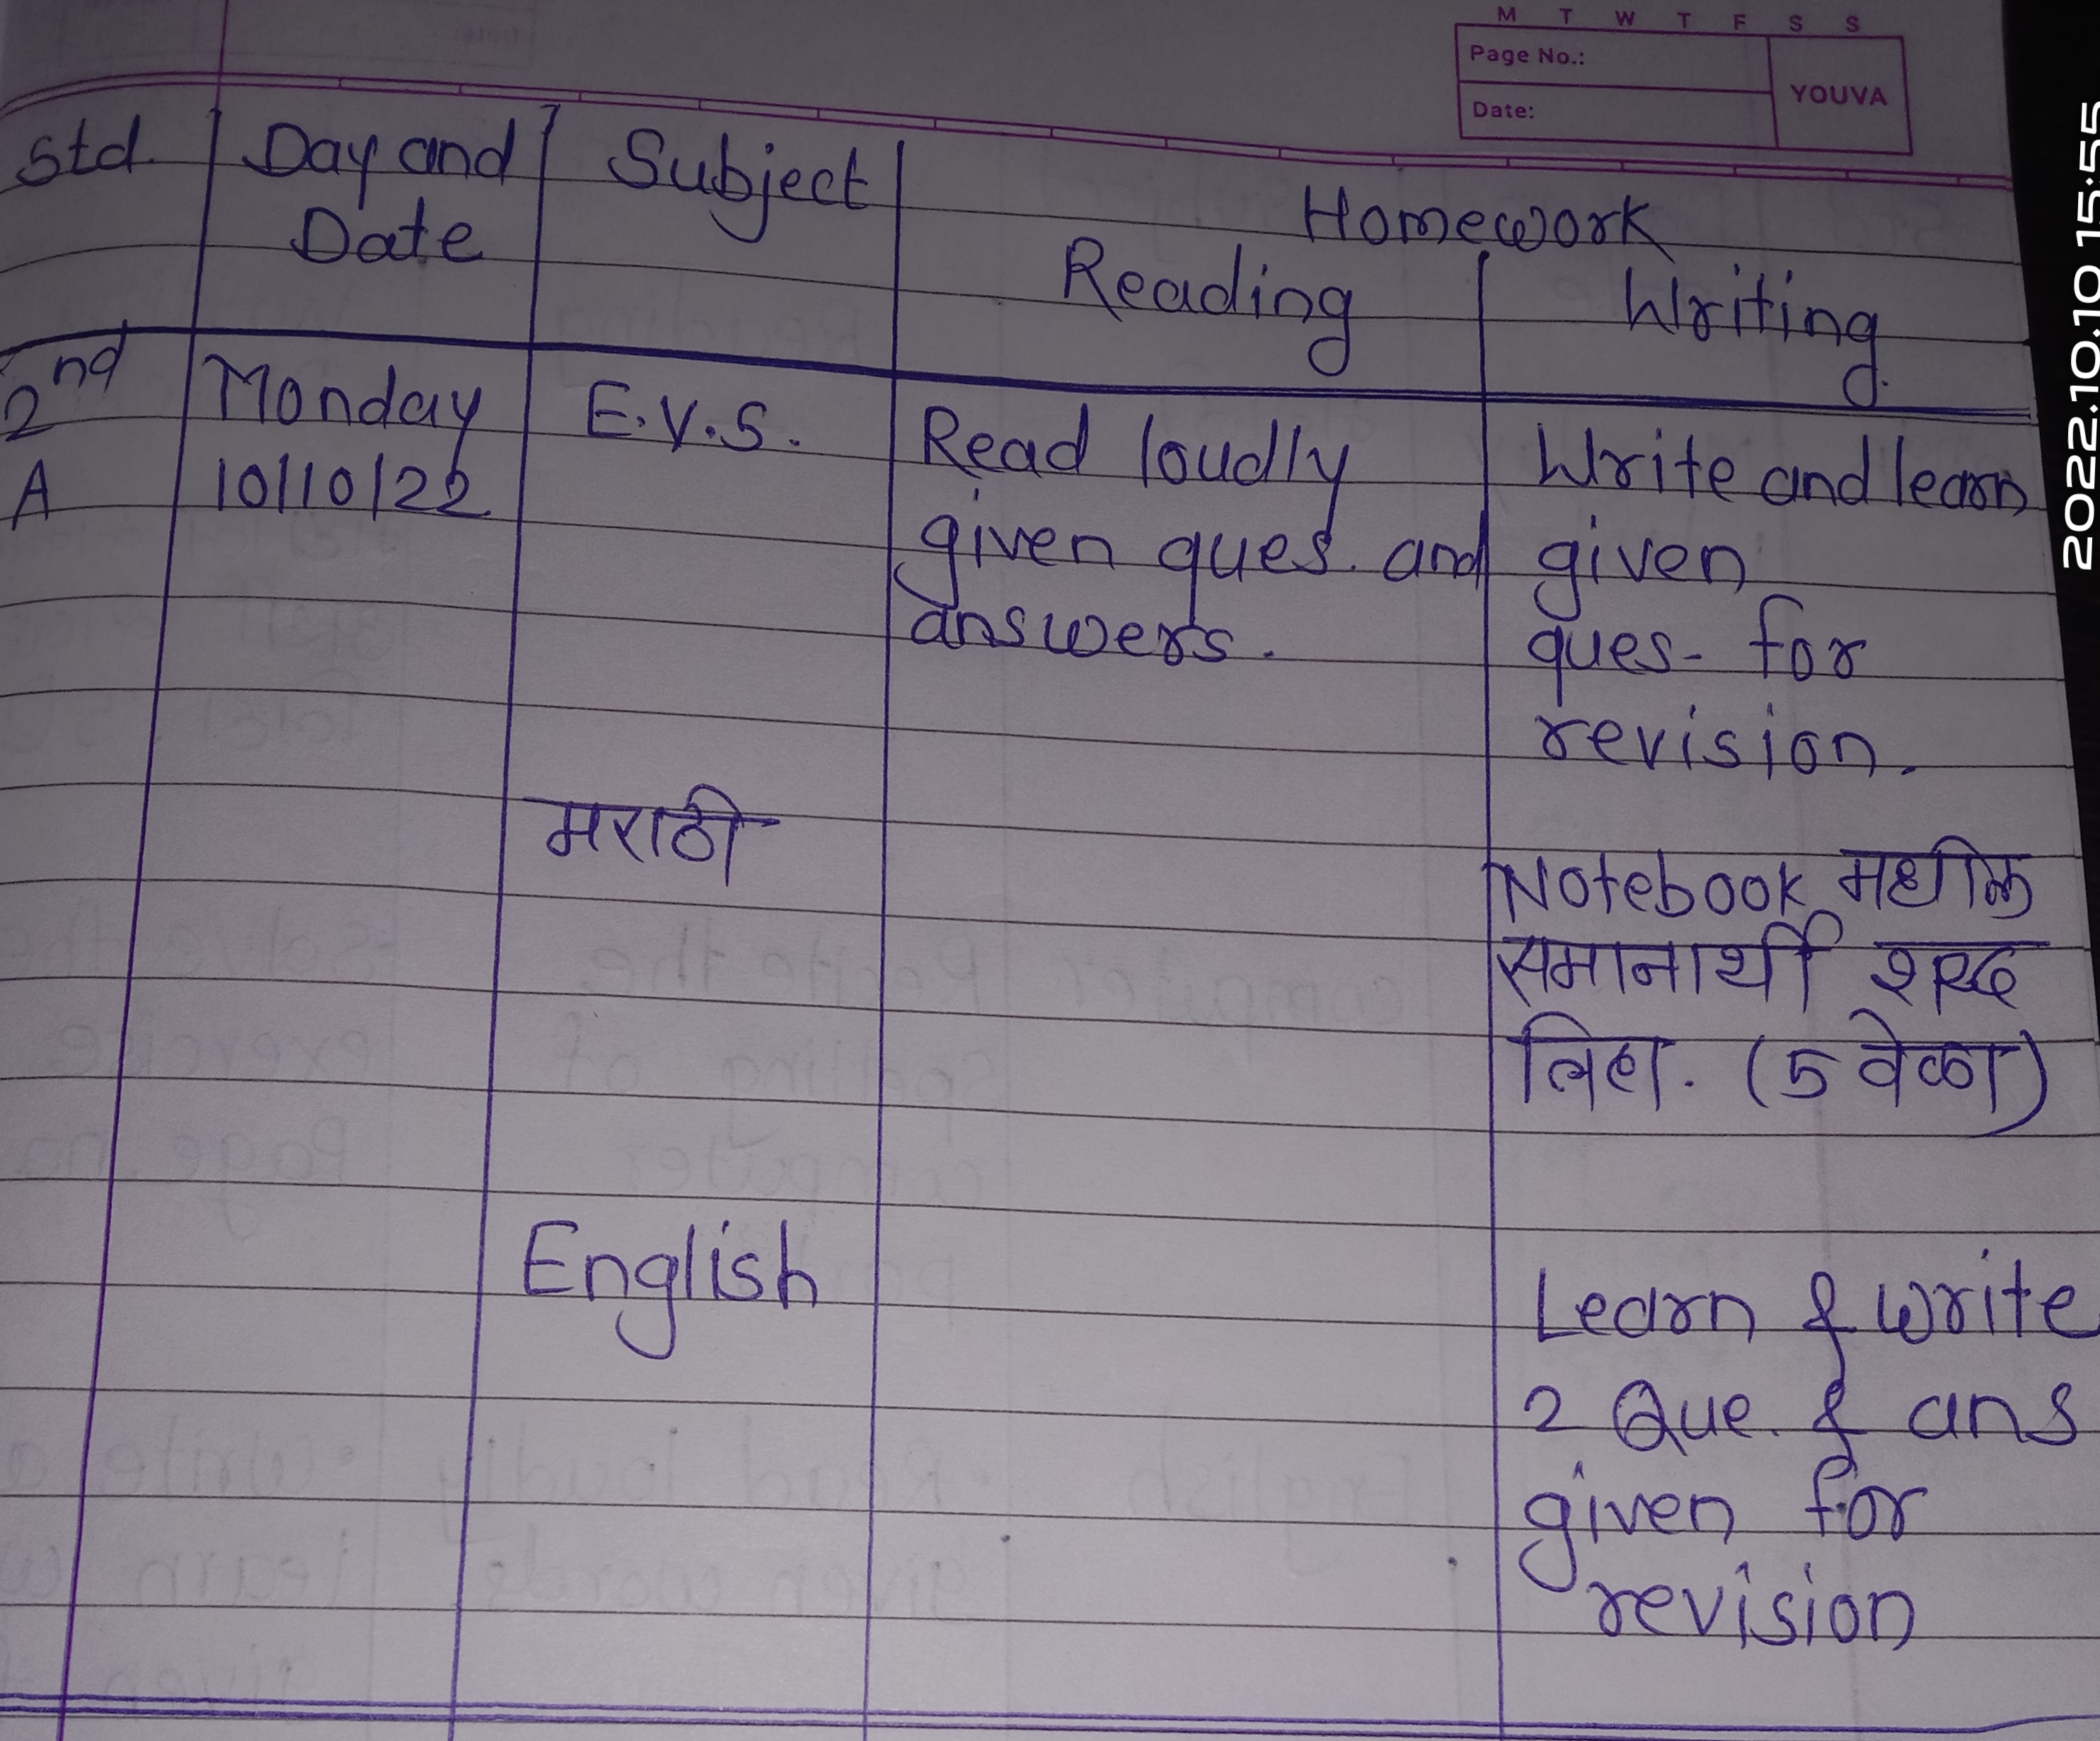 M T W T F S S
Page No.:
YOUVA
Date:
Std. Day and Date Subject Homework
Reading Writing
2nd A Monday 10/10/22 E.V.S.
Read loudly
given ques. and
answers.
Write and learn
given
ques- for
revision.
मराठी
Notebook मधील
समानार्थी शब्द
लिहा. (5 वेळा)
English
Learn & write
2 Que. & ans
given for
revision
2022.10.10 15:55